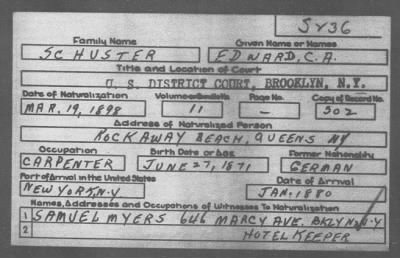 S236
Family Name Given Name or Names
SCHUSTER EDWARD, C.A.
Title and Location of Court
U. S. DISTRICT COURT, BROOKLYN, N.Y.
Date of Naturalization Volume or Bundle No. Page No. Copy of Record No.
MAR. 19, 1898 11 — 302
Address of Naturalized Person
ROCKAWAY BEACH, QUEENS NY
Occupation Birth Date or Age Former Nationality
CARPENTER JUNE 27, 1871 GERMAN
Port of Arrival in the United States Date of Arrival
NEW YORK, N.Y JAN. 1880
Names, Addresses and Occupations of Witnesses To Naturalization
1 SAMUEL MYERS 646 MARCY AVE. BKLYN, N.Y
2 HOTEL KEEPER